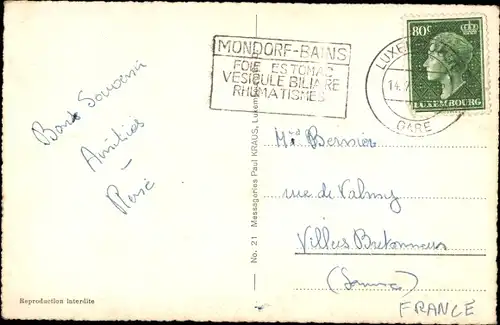 MONDORF-BAINS
FOIE ESTOMAC
VESICULE BILIAIRE
RHUMATISMES
LUXEMBOURG
14.
GARE
80c
LUXEMBOURG
Bons Souvenirs
Amitiés
–
René
No. 21 Messageries Paul KRAUS, Luxem
Bernier
rue de Valmy
Villers Bretonneux
(Somme)
FRANCE
Reproduction interdite